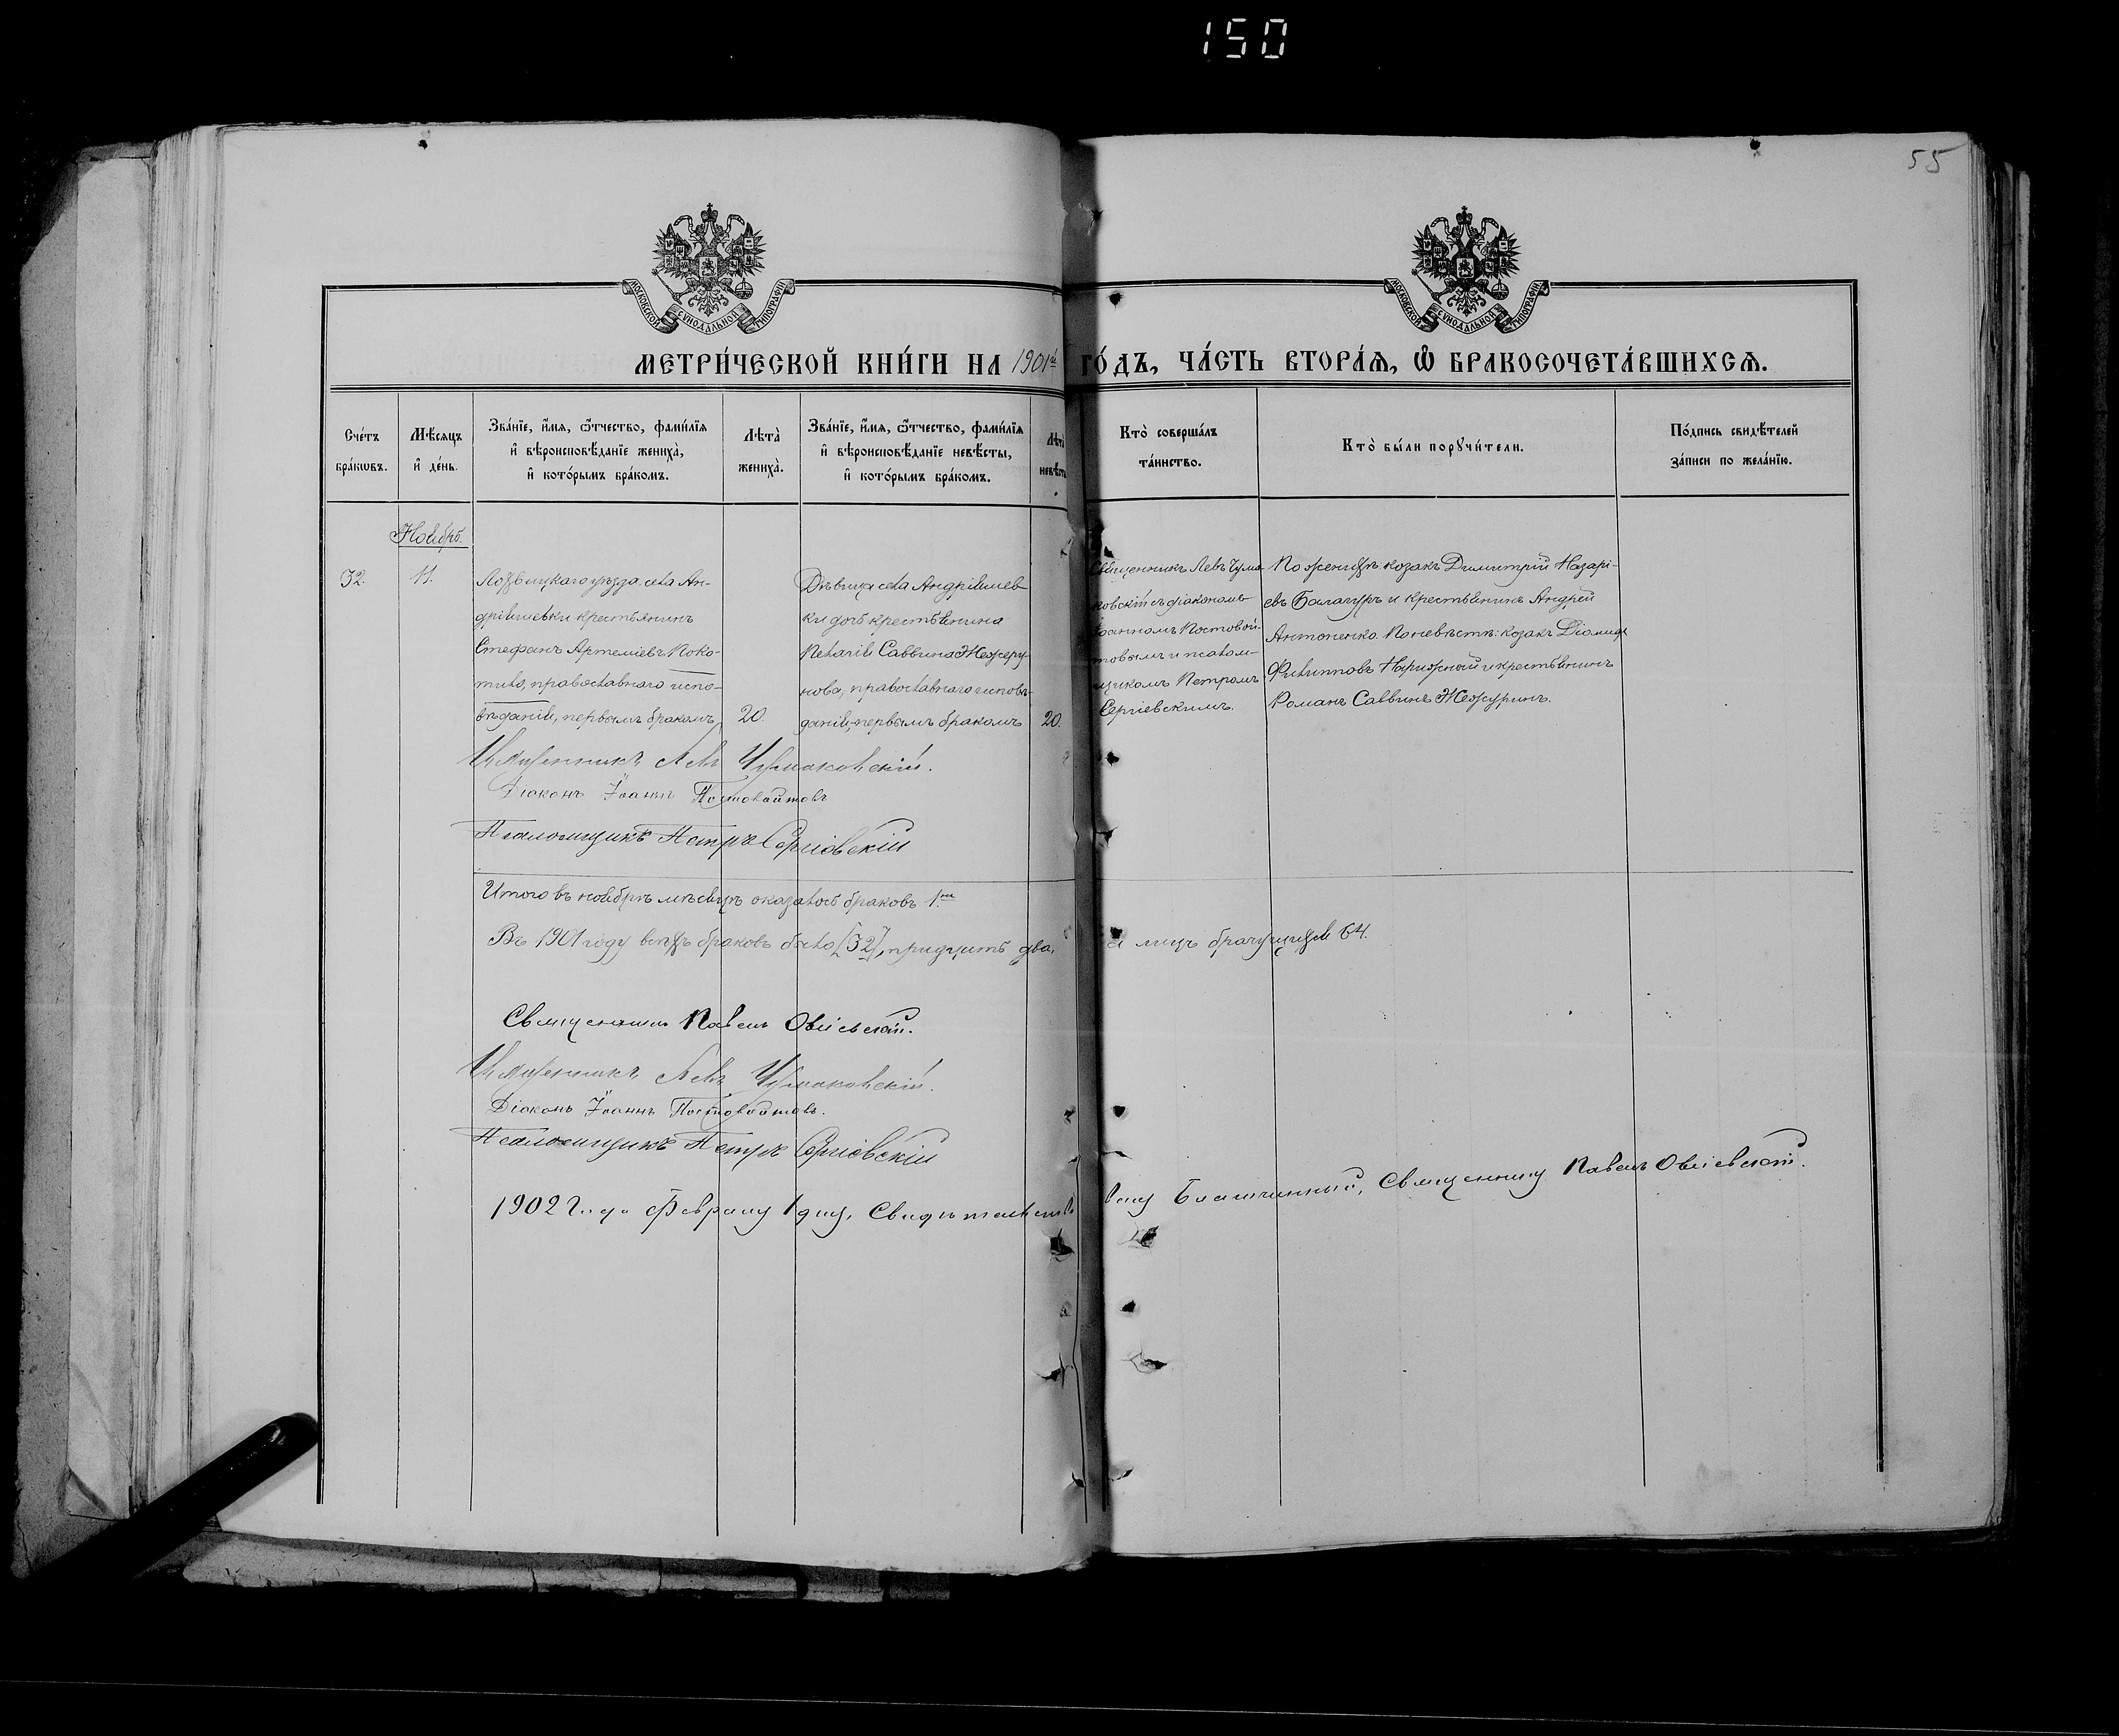 150
55
МОСКОВСКОЙ СѴНОДАЛЬНОЙ ТИПОГРАФІИ
МОСКОВСКОЙ СѴНОДАЛЬНОЙ ТИПОГРАФІИ
МЕТРИ́ЧЕСКОЙ КНИ́ГИ НА 1901й ГО́ДЪ, ЧА́СТЬ ВТОРА́Ѧ, Ѽ БРАКОСОЧЕТА́ВШИХСѦ.
Сче́тъ
бра́кѡвъ.
Мѣ́сяцъ
и҆ де́нь.
Зва́нїе, и҆́мя, ѻ҆́тчество, фами́лїя
и҆ вѣроисповѣ́данїе жениха̀,
и҆ кото́рымъ бра́комъ.
Лѣта̀
жениха̀.
Зва́нїе, и҆́мя, ѻ҆́тчество, фами́лїя
и҆ вѣроисповѣ́данїе невѣ́сты,
и҆ кото́рымъ бра́комъ.
Лѣта̀
невѣ́сты
Кто̀ соверша́лъ
та́инство.
Кто̀ бы́ли порꙋчи́тели.
По́дпись свидѣ́телей
за́писи по жела́нїю.
Ноябрь.
32.
11.
Лохвицкаго уѣзда, села Ан-
дріяшевки крестьянинъ
Стефанъ Артеміевъ Поко-
тило, православнаго испо-
вѣданія, первымъ бракомъ,
20.
Дѣвица села Андріяшев-
ки дочь крестьянина
Пелагія Саввина Межеру-
нова, православнаго исповѣ-
данія, первымъ бракомъ
20.
Священникъ Левъ Чума-
ковскій съ діакономъ
Іоанномъ Постовой-
товымъ и псалом-
щикомъ Петромъ
Сергіевскимъ.
По женихѣ: козакъ Димитрій Назарі-
евъ Балагуръ и крестьянинъ Андрей
Антоненко. По невѣстѣ: козакъ Діомидъ
Филипповъ Нарижный и крестьянинъ
Романъ Саввинъ Межуринъ.
Священникъ Левъ Чумаковскій.
Діаконъ Іоаннъ Постовойтовъ
Псаломщикъ Петръ Сергіевскій
Итого въ ноябрѣ мѣсяцѣ оказалось браковъ 1.
Въ 1901 году всѣхъ браковъ было [32], тридцать два, а лицъ брачущихся 64.
Священникъ Павелъ Овсіевскій.
Священникъ Левъ Чумаковскій.
Діаконъ Іоаннъ Постовойтовъ.
Псаломщикъ Петръ Сергіевскій
1902 года Февраля 1 дня, Свидѣтельствовалъ Благочинный, Священникъ Павелъ Овсіевскій.